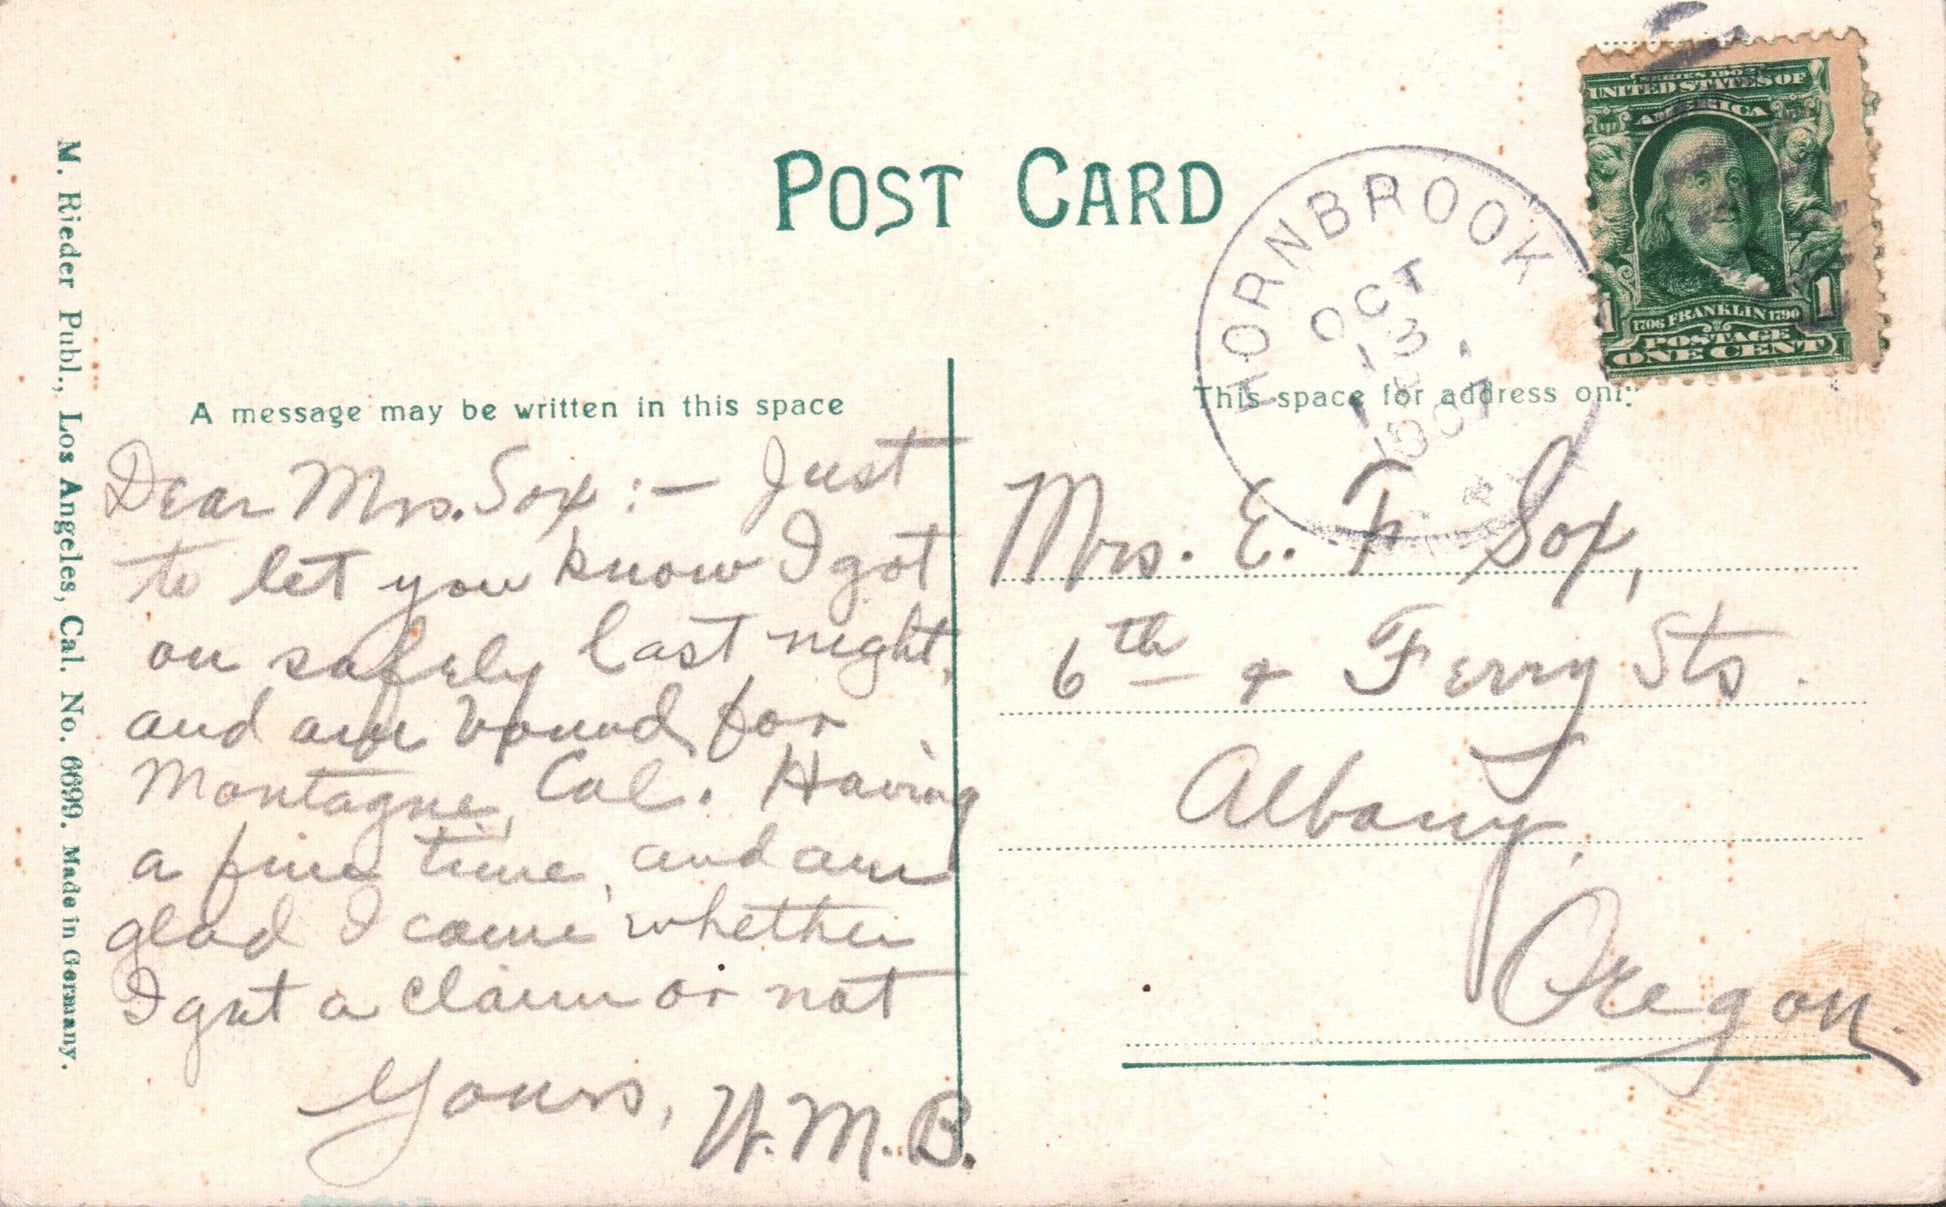 POST CARD
SERIES 1902
UNITED STATES OF
AMERICA
1706 FRANKLIN 1790
1 1
POSTAGE
ONE CENT
HORNBROOK
OCT
13
1907
M. Rieder Publ., Los Angeles, Cal. No. 6699. Made in Germany.
A message may be written in this space
Dear Mrs. Sox:- Just
to let you know I got
on safely last night,
and am bound for
Montague, Cal. Having
a fine time, and am
glad I came whether
I get a claim or not
Yours, W.M.B.
This space for address only
Mrs. E. F. Sox,
6th & Ferry Sts.
Albany,
Oregon.